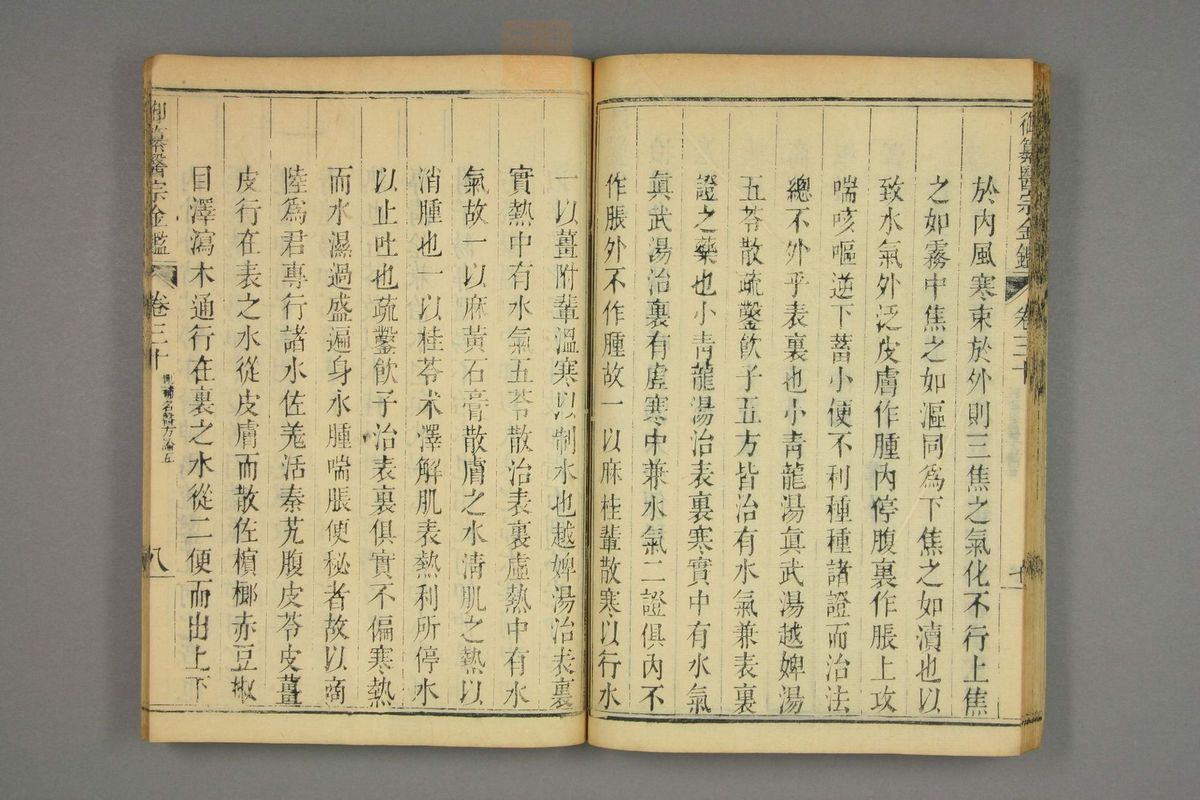 御纂醫宗金鑑 卷三十 七
於內風寒束於外則三焦之氣化不行上焦
之如霧中焦之如漚同爲下焦之如瀆也以
致水氣外泛皮膚作腫內停腹裏作脹上攻
喘咳嘔逆下蓄小便不利種種諸證而治法
總不外乎表裏也小靑龍湯眞武湯越婢湯
五苓散疏鑿飮子五方皆治有水氣兼表裏
證之藥也小靑龍湯治表裏寒實中有水氣
眞武湯治裏有虛寒中兼水氣二證俱內不
作脹外不作腫故一以麻桂輩散寒以行水
一以薑附輩溫寒以制水也越婢湯治表裏
實熱中有水氣五苓散治表裏虛熱中有水
氣故一以麻黃石膏散膚之水淸肌之熱以
消腫也一以桂苓朮澤解肌表熱利所停水
以止吐也疏鑿飮子治表裏俱實不偏寒熱
而水濕過盛遍身水腫喘脹便秘者故以商
陸爲君專行諸水佐羌活秦艽腹皮苓皮薑
皮行在表之水從皮膚而散佐檳榔赤豆椒
目澤瀉木通行在裏之水從二便而出上下
御纂醫宗金鑑 卷三十 刪補名醫方論五 八